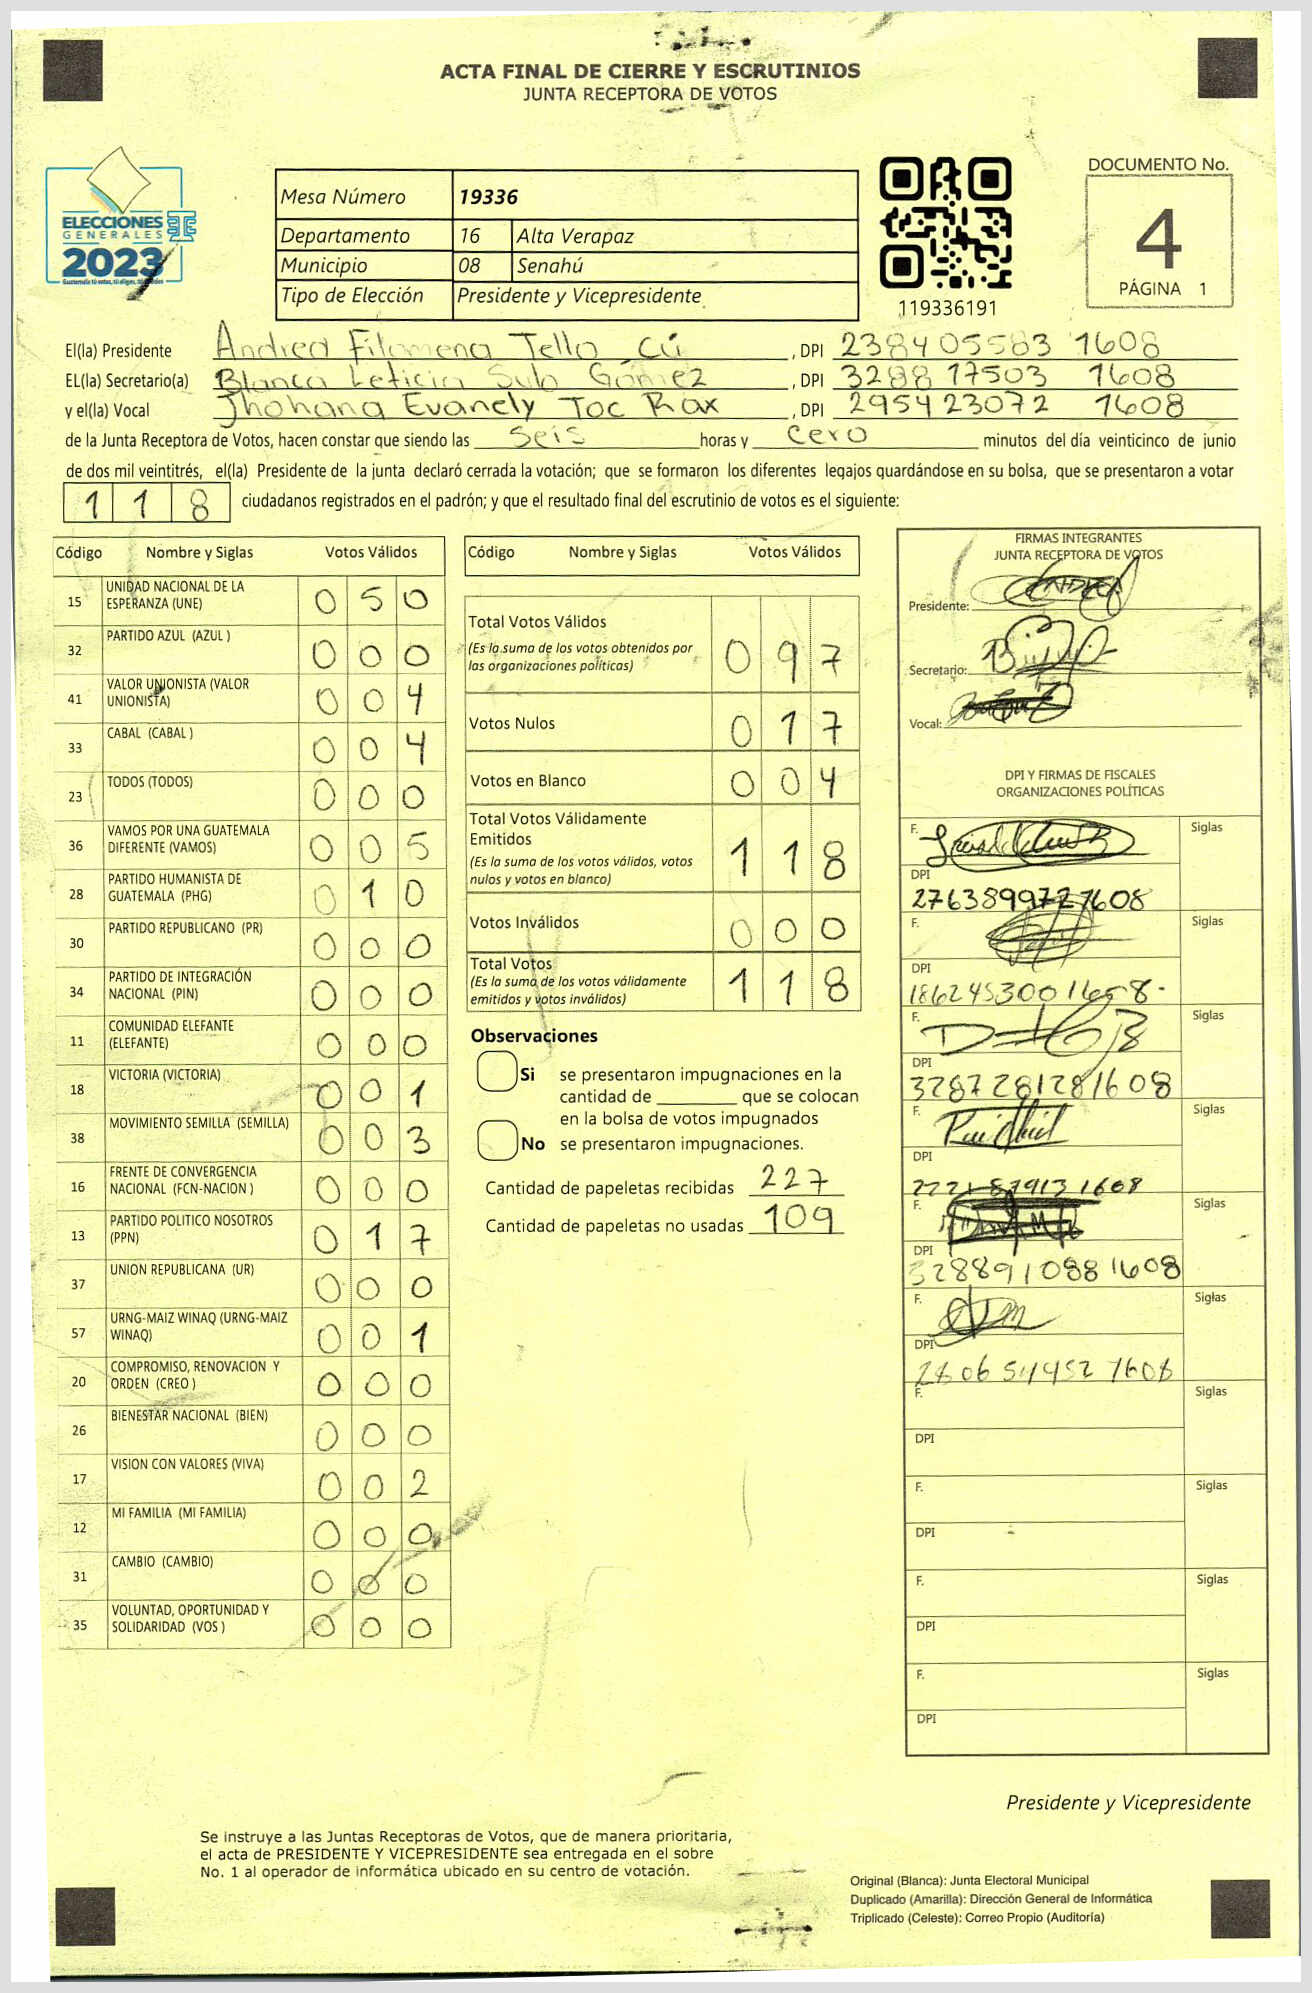 ACTA FINAL DE CIERRE Y ESCRUTINIOS
JUNTA RECEPTORA DE VOTOS
ELECCIONES
GENERALES
2023
Mesa Número 19336
Departamento 16 Alta Verapaz
Municipio 08 Senahú
Tipo de Elección Presidente y Vicepresidente
119336191
DOCUMENTO No.
4
PÁGINA 1
El(la) Presidente Andrea Filomena Tello Cú , DPI 238405583 1608
EL(la) Secretario(a) Blanca Leticia Sub Gómez , DPI 3288 17503 1608
y el(la) Vocal Jhohana Evanely Toc Rax , DPI 295423072 1608
de la Junta Receptora de Votos, hacen constar que siendo las seis horas y cero minutos del día veinticinco de junio
de dos mil veintitrés, el(la) Presidente de la junta declaró cerrada la votación; que se formaron los diferentes legajos quardándose en su bolsa, que se presentaron a votar
118 ciudadanos registrados en el padrón; y que el resultado final del escrutinio de votos es el siguiente:
Código Nombre y Siglas Votos Válidos
15 UNIDAD NACIONAL DE LA ESPERANZA (UNE) 0 5 0
32 PARTIDO AZUL (AZUL ) 0 0 0
41 VALOR UNIONISTA (VALOR UNIONISTA) 0 0 4
33 CABAL (CABAL ) 0 0 4
23 TODOS (TODOS) 0 0 0
36 VAMOS POR UNA GUATEMALA DIFERENTE (VAMOS) 0 0 5
28 PARTIDO HUMANISTA DE GUATEMALA (PHG) 0 1 0
30 PARTIDO REPUBLICANO (PR) 0 0 0
34 PARTIDO DE INTEGRACIÓN NACIONAL (PIN) 0 0 0
11 COMUNIDAD ELEFANTE (ELEFANTE) 0 0 0
18 VICTORIA (VICTORIA) 0 0 1
38 MOVIMIENTO SEMILLA (SEMILLA) 0 0 3
16 FRENTE DE CONVERGENCIA NACIONAL (FCN-NACION ) 0 0 0
13 PARTIDO POLITICO NOSOTROS (PPN) 0 1 7
37 UNION REPUBLICANA (UR) 0 0 0
57 URNG-MAIZ WINAQ (URNG-MAIZ WINAQ) 0 0 1
20 COMPROMISO, RENOVACION Y ORDEN (CREO ) 0 0 0
26 BIENESTAR NACIONAL (BIEN) 0 0 0
17 VISION CON VALORES (VIVA) 0 0 2
12 MI FAMILIA (MI FAMILIA) 0 0 0
31 CAMBIO (CAMBIO) 0 0 0
35 VOLUNTAD, OPORTUNIDAD Y SOLIDARIDAD (VOS ) 0 0 0
Código Nombre y Siglas Votos Válidos
Total Votos Válidos 0 9 7
(Es la suma de los votos obtenidos por
las organizaciones políticas)
Votos Nulos 0 1 7
Votos en Blanco 0 0 4
Total Votos Válidamente
Emitidos 1 1 8
(Es la suma de los votos válidos, votos
nulos y votos en blanco)
Votos Inválidos 0 0 0
Total Votos 1 1 8
(Es la suma de los votos válidamente
emitidos y votos inválidos)
Observaciones
Si se presentaron impugnaciones en la
cantidad de ________ que se colocan
en la bolsa de votos impugnados
No se presentaron impugnaciones.
Cantidad de papeletas recibidas 227
Cantidad de papeletas no usadas 109
FIRMAS INTEGRANTES
JUNTA RECEPTORA DE VOTOS
Presidente:
Secretario:
Vocal:
DPI Y FIRMAS DE FISCALES
ORGANIZACIONES POLÍTICAS
F. Siglas
DPI
2763899721608
F. Siglas
DPI
F. Siglas
DPI
3287281281608
F. Siglas
DPI
F. Siglas
DPI
3288910881608
F. Siglas
DPI
F. Siglas
DPI
F. Siglas
DPI
F. Siglas
DPI
F. Siglas
DPI
Presidente y Vicepresidente
Se instruye a las Juntas Receptoras de Votos, que de manera prioritaria,
el acta de PRESIDENTE Y VICEPRESIDENTE sea entregada en el sobre
No. 1 al operador de informática ubicado en su centro de votación.
Original (Blanca): Junta Electoral Municipal
Duplicado (Amarilla): Dirección General de Informática
Triplicado (Celeste): Correo Propio (Auditoría)